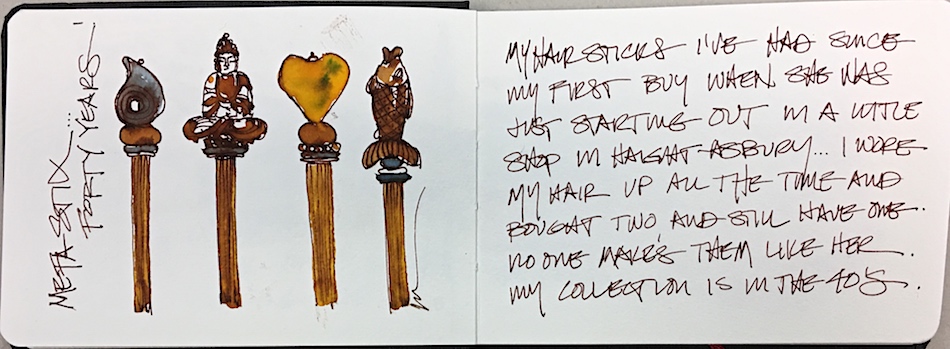 META STIX....
FORTY YEARS!
MY HAIR STICKS I'VE HAD SINCE
MY FIRST BUY WHEN SHE WAS
JUST STARTING OUT IN A LITTLE
SHOP IN HAIGHT-ASBURY... I WORE
MY HAIR UP ALL THE TIME AND
BOUGHT TWO AND STILL HAVE ONE.
NO ONE MAKE'S THEM LIKE HER.
MY COLLECTION IS IN THE 40'S.